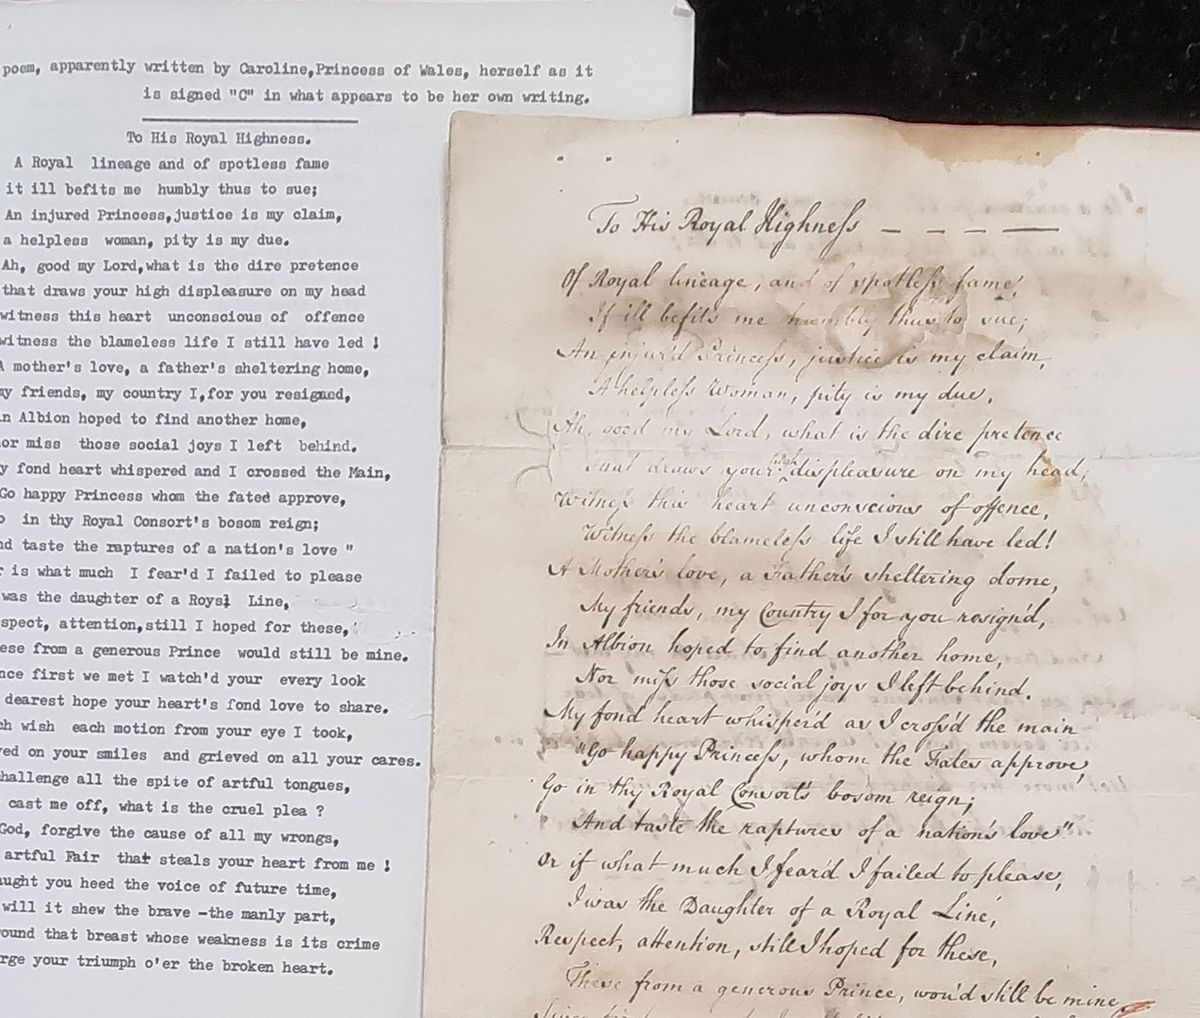 poem, apparently written by Caroline,Princess of Wales, herself as it
is signed "C" in what appears to be her own writing.
To His Royal Highness.
A Royal lineage and of spotless fame
it ill befits me humbly thus to sue;
An injured Princess,justice is my claim,
a helpless woman, pity is my due.
Ah, good my Lord,what is the dire pretence
that draws your high displeasure on my head
witness this heart unconscious of offence
witness the blameless life I still have led !
A mother's love, a father's sheltering home,
my friends, my country I,for you resigned,
in Albion hoped to find another home,
nor miss those social joys I left behind.
y fond heart whispered and I crossed the Main,
Go happy Princess whom the fated approve,
o in thy Royal Consort's bosom reign;
nd taste the raptures of a nation's love "
r is what much I fear'd I failed to please
was the daughter of a Royal Line,
spect, attention,still I hoped for these,
ese from a generous Prince would still be mine.
nce first we met I watch'd your every look
dearest hope your heart's fond love to share.
ch wish each motion from your eye I took,
ved on your smiles and grieved on all your cares.
hallenge all the spite of artful tongues,
cast me off, what is the cruel plea ?
God, forgive the cause of all my wrongs,
artful Fair that steals your heart from me !
aught you heed the voice of future time,
will it shew the brave -the manly part,
ound that breast whose weakness is its crime
rge your triumph o'er the broken heart.
To His Royal Highness
Of Royal lineage, and of spotless fame,
It ill befits me humbly thus to sue;
An injur'd Princess, justice is my claim,
A helpless Woman, pity is my due,
Ah, good my Lord, what is the dire pretence
That draws your high displeasure on my head;
Witness this heart unconscious of offence,
Witness the blameless life I still have led!
A Mother's love, a Father's sheltering dome,
My friends, my Country I for you resign'd,
In Albion hoped to find another home,
Nor miss those social joys I left behind.
My fond heart whisper'd as I cross'd the main
"Go happy Princess, whom the Fates approve,
Go in thy Royal Consort's bosom reign;
And taste the raptures of a nation's love"
Or if what much I fear'd I failed to please,
I was the Daughter of a Royal Line,
Respect, attention, still I hoped for these,
These from a generous Prince, wou'd still be mine